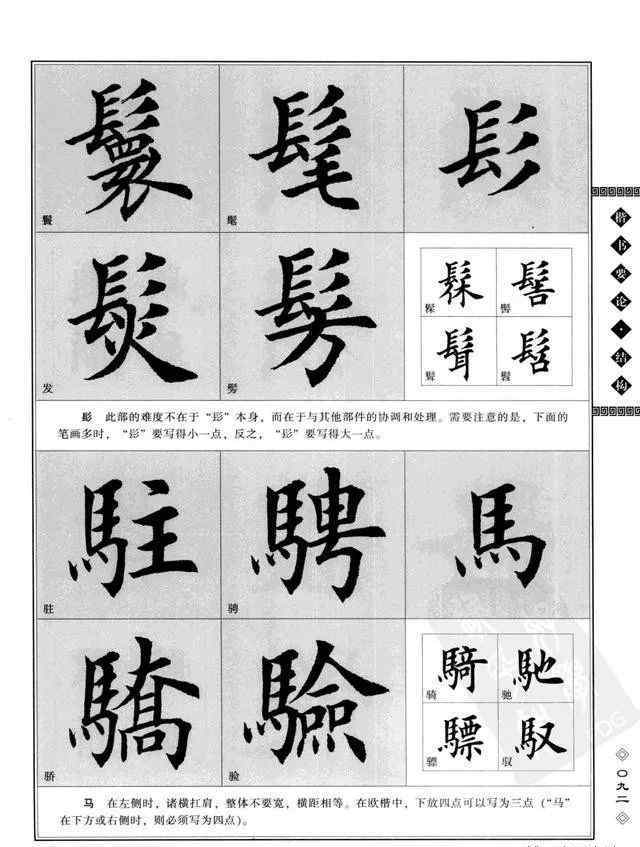 鬟
髦
髟
鬟
髦
髮
髣
发
髣
髹
髻
髹
髻
髯
髫
髫
髟 此部的难度不在于“髟”本身，而在于与其他部件的协调和处理。需要注意的是，下面的
笔画多时，“髟”要写得小一点，反之，“髟”要写得大一点。
駐
騁
馬
驻
骋
驕
驗
骄
验
騎
馳
骑
驰
驃
馭
骠
驭
马 在左侧时，诸横扛肩，整体不要宽，横距相等。在欧楷中，下放四点可以写为三点（“马”
在下方或右侧时，则必须写为四点）。
楷书要论·结构
〇九二